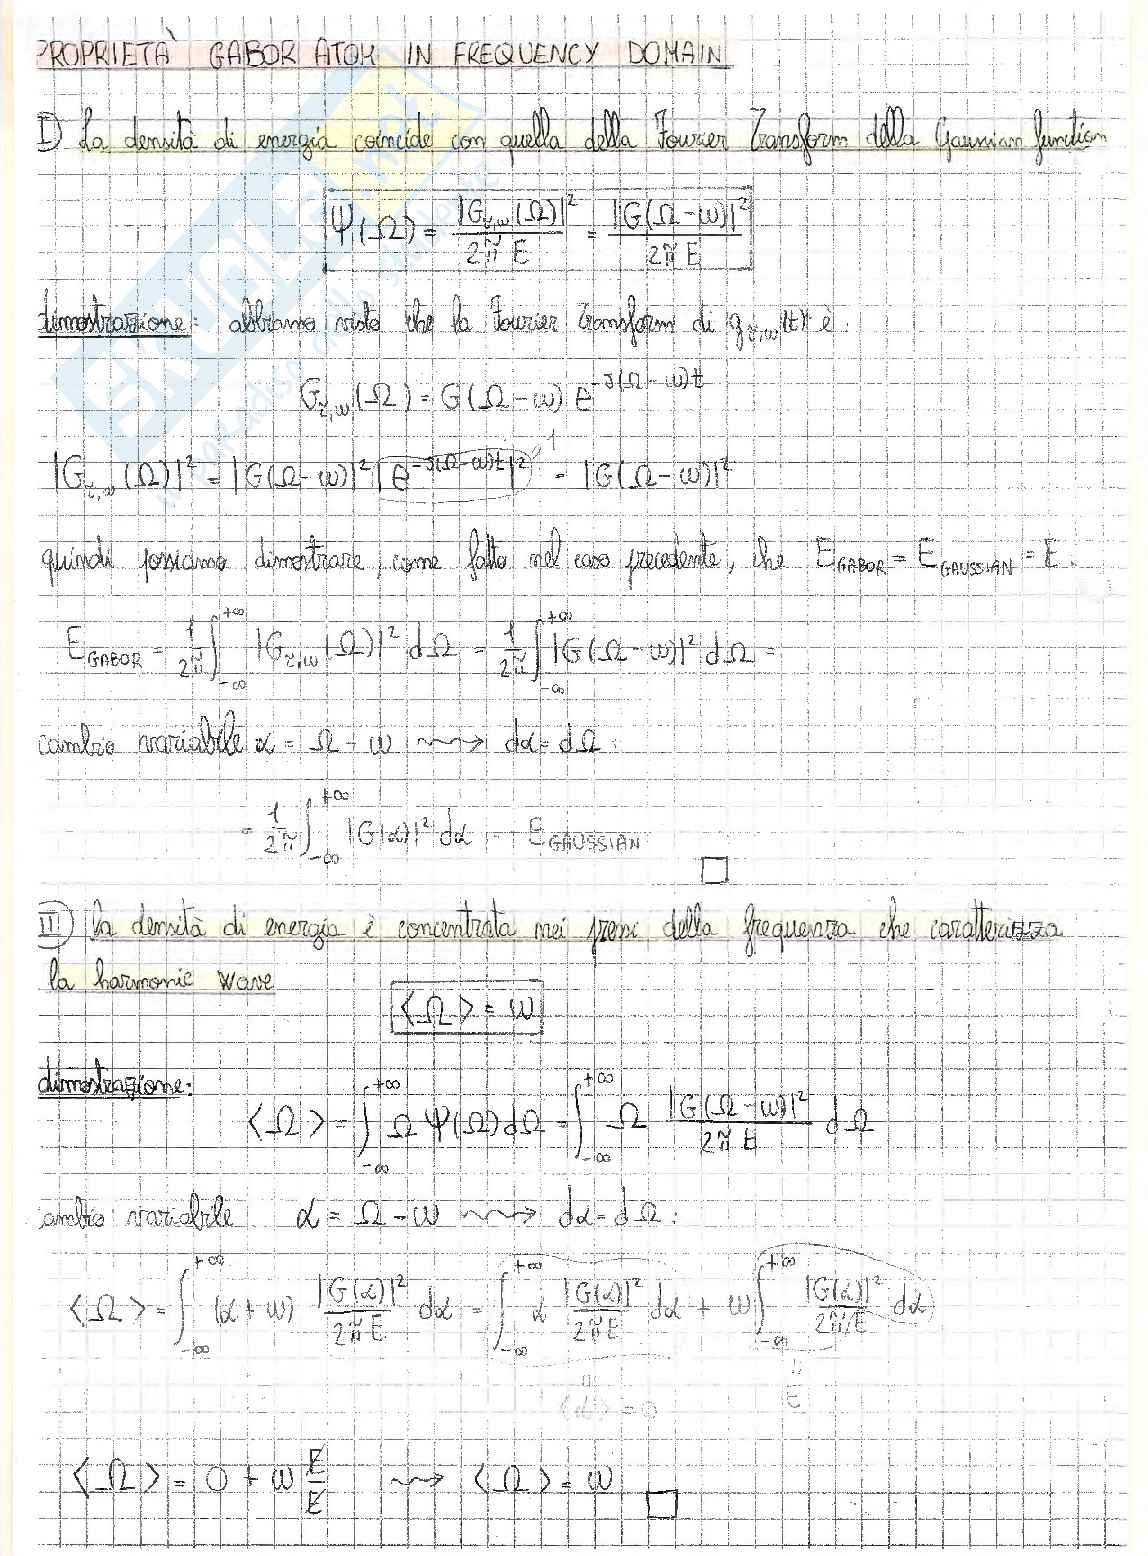 PROPRIETÀ GABOR ATOM IN FREQUENCY DOMAIN
I) La densità di energia coincide con quella della Fourier Transform della Gaussian function
Ψ(Ω) = |G_{τ,ω}(Ω)|² / 2π E = |G(Ω-ω)|² / 2π E
dimostrazione: abbiamo visto che la Fourier Transform di g_{τ,ω}(t) è:
G_{τ,ω}(Ω) = G(Ω-ω) e^{-J(Ω-ω)t}
|G_{τ,ω}(Ω)|² = |G(Ω-ω)|² |e^{-J(Ω-ω)t}|² = |G(Ω-ω)|²
1
quindi possiamo dimostrare, come fatto nel caso precedente, che E_GABOR = E_GAUSSIAN = E.
E_GABOR = 1/2π ∫_{-∞}^{+∞} |G_{τ,ω}(Ω)|² dΩ = 1/2π ∫_{-∞}^{+∞} |G(Ω-ω)|² dΩ =
cambio variabile α = Ω - ω ⇝ dα = dΩ:
= 1/2π ∫_{-∞}^{+∞} |G(α)|² dα = E_GAUSSIAN
□
II) la densità di energia è concentrata nei pressi della frequenza che caratterizza
la harmonic wave
⟨Ω⟩ = ω
dimostrazione:
⟨Ω⟩ = ∫_{-∞}^{+∞} Ω Ψ(Ω) dΩ = ∫_{-∞}^{+∞} Ω |G(Ω-ω)|² / 2π E dΩ
ambio variabile α = Ω - ω ⇝ dα = dΩ:
⟨Ω⟩ = ∫_{-∞}^{+∞} (α + ω) |G(α)|² / 2π E dα = ∫_{-∞}^{+∞} α |G(α)|² / 2π E dα + ω ∫_{-∞}^{+∞} |G(α)|² / 2π E dα
⟨α⟩ = 0
E
⟨Ω⟩ = 0 + ω E/E ⇝ ⟨Ω⟩ = ω
□